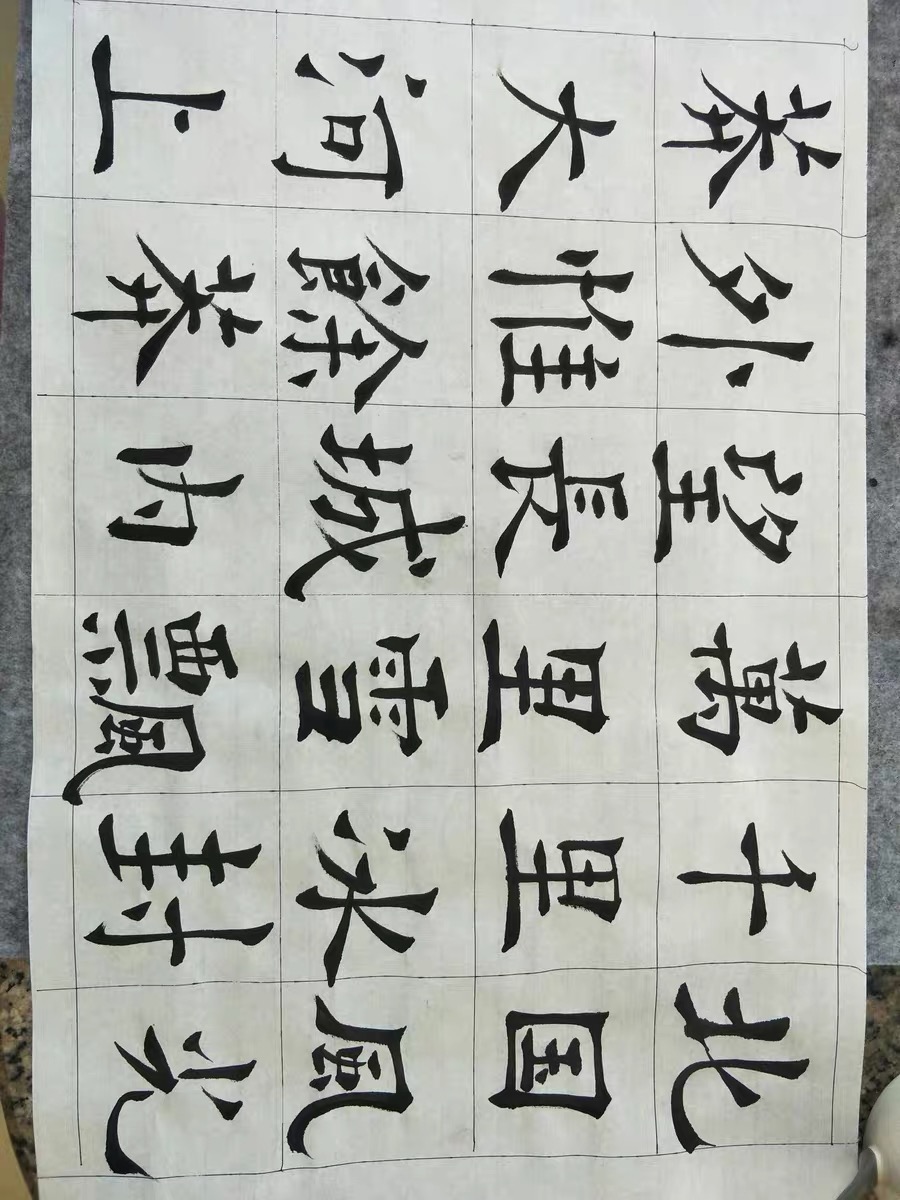 北国風光
千里冰封
萬里雪飄
望長城内
外惟餘莽
莽大河上